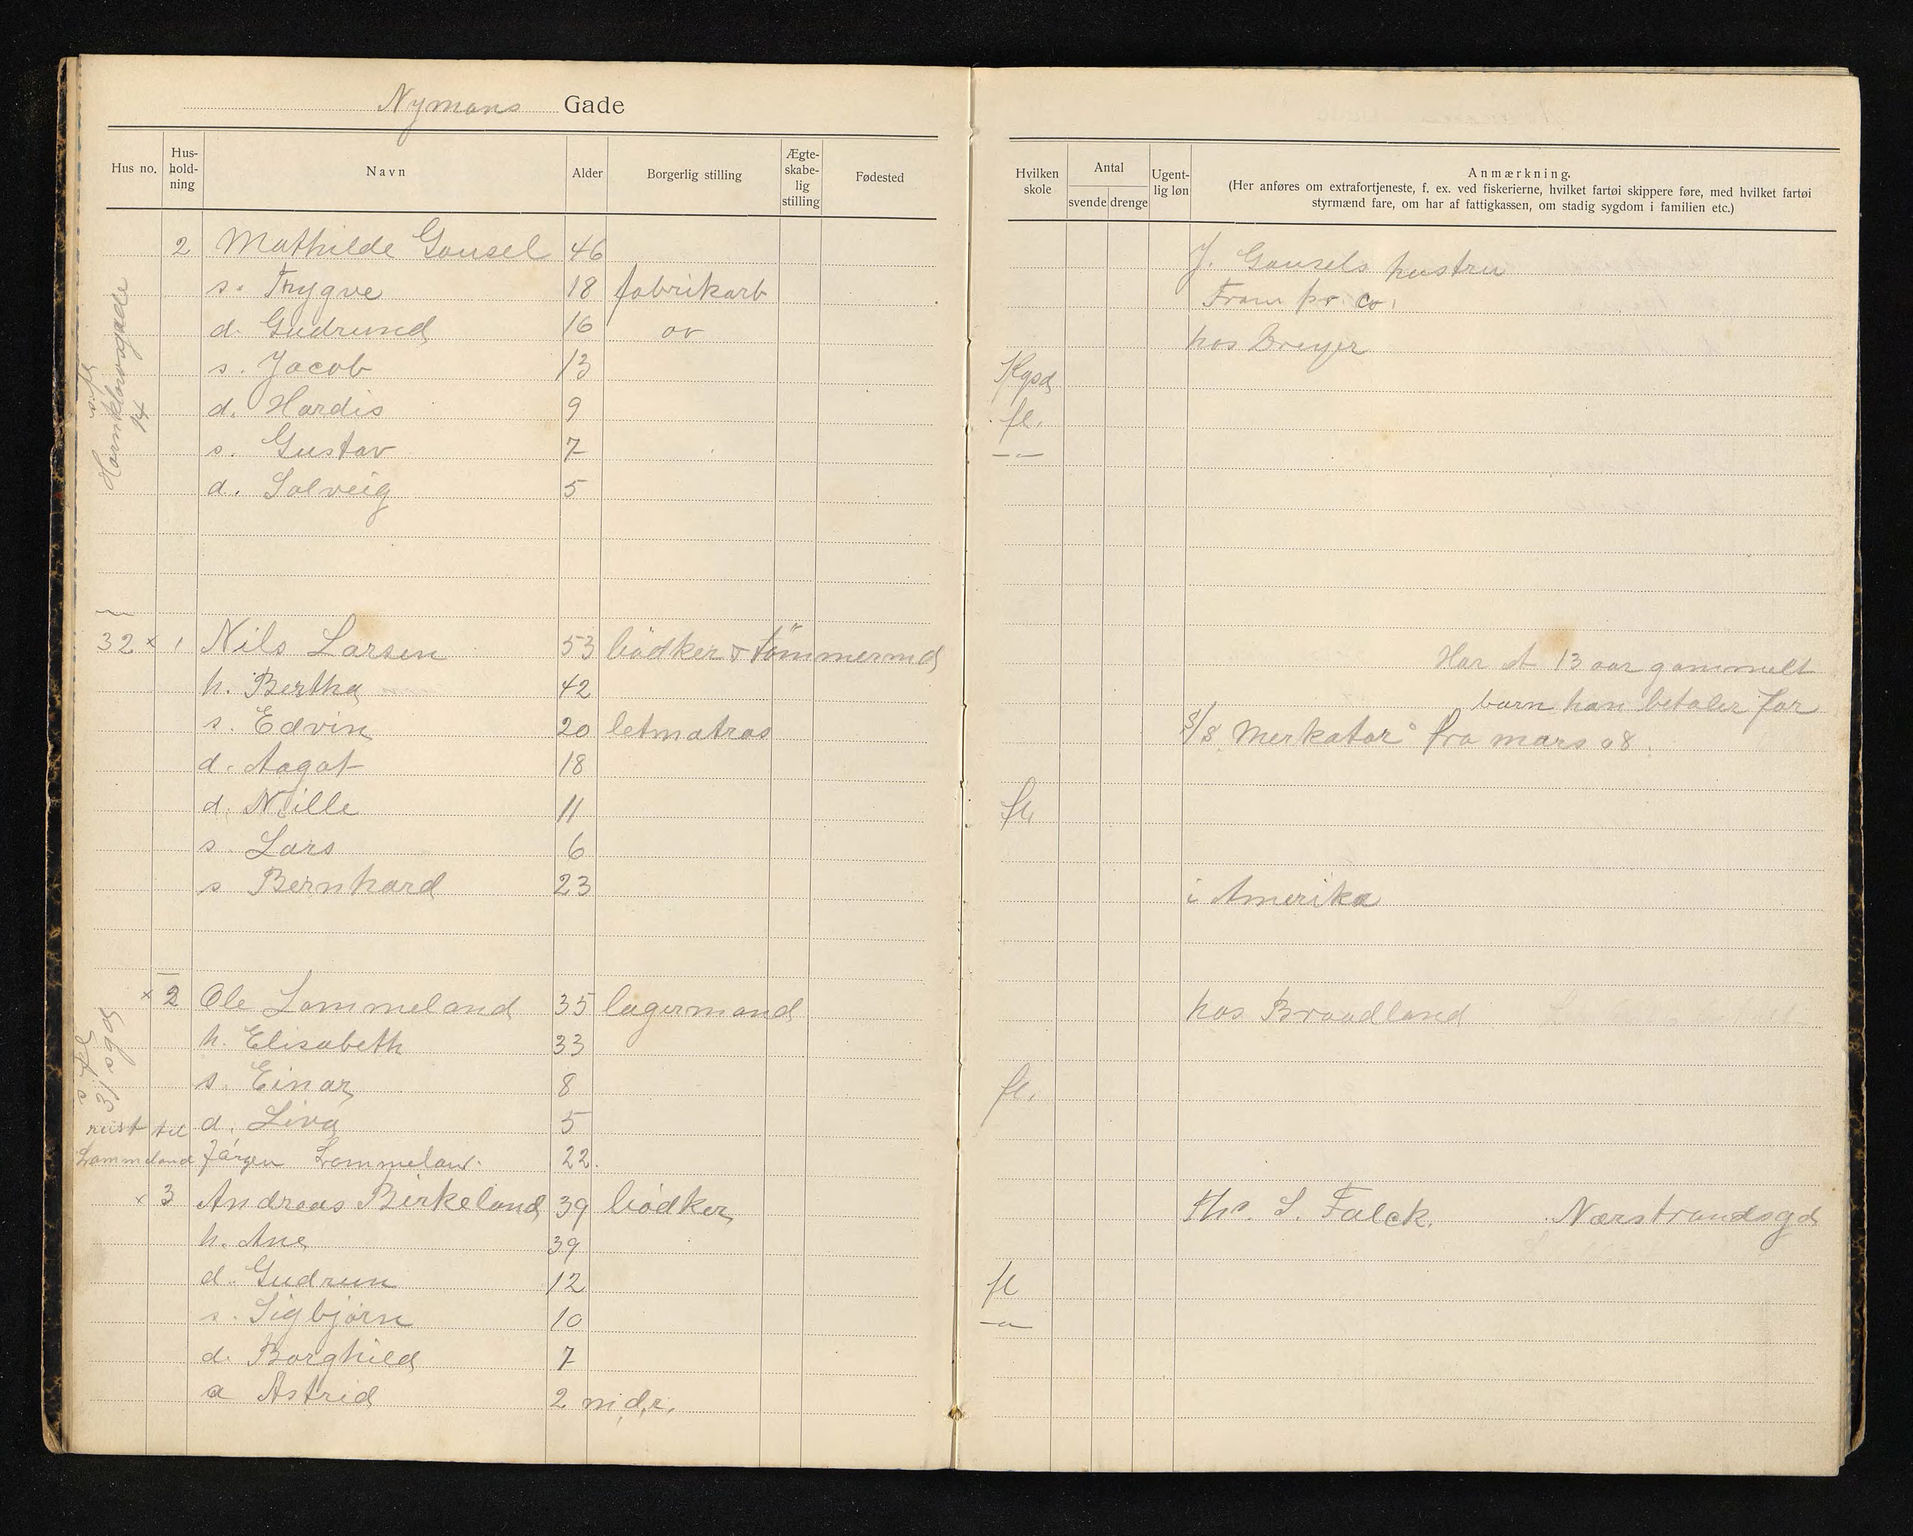 Nymans Gade
Hus no. Hus-hold-ning Navn Alder Borgerlig stilling Ægte-skabe-lig stilling Fødested
Hvilken skole Antal svende drenge Ugent-lig løn Anmærkning.
(Her anføres om extrafortjeneste, f. ex. ved fiskerierne, hvilket fartøi skippere føre, med hvilket fartøi
styrmænd fare, om har af fattigkassen, om stadig sygdom i familien etc.)
2 Mathilde Gausel 46 J. Gausels hustru
s. Trygve 18 fabrikarb Fram pr co.
d. Gudrund 16 av hos Dreyer
s. Jacob 13 Kgsd
d. Hardis 9 fl.
s. Gustav 7 -"-
d. Solveig 5
14
32 x 1 Nils Larsen 53 bödker & tömmermd Har et 13 aar gammelt
h. Bertha 42 barn han betaler for
s. Edvin 20 letmatros S/S Merkator fra mars 08.
d. Aagot 18
d. Nille 11 fl.
s. Lars 6
s Bernhard 23 i Amerika
x 2 Ole Lommeland 35 lagermand hos Braadland
h. Elisabeth 33
s. Einar 8 fl.
d. Liva 5
til
Lommeland Jörgen Lommelan. 22.
x 3 Andreas Birkeland 39 bödker Ths. S. Falck. Nærstrandsgd
h. Ane 39
d. Gudrun 12 fl
s. Sigbjørn 10 -"-
d. Borghild 7
a Astrid 2 m.d.r.